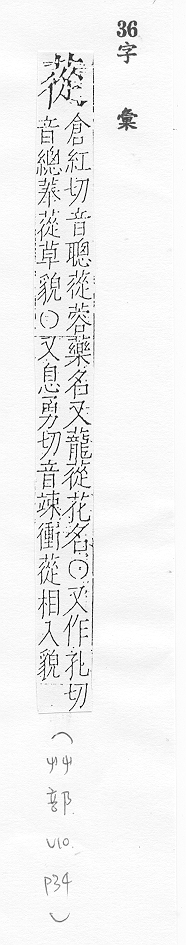 36
字彙
蓯
倉紅切音聰蓯蓉藥名又蘢蓯花名〇又作孔切
音總蓁蓯草貌〇又息勇切音竦衝蓯相入貌
(艸部 V10. P34)